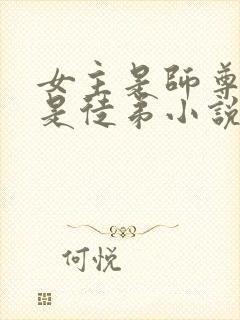 女主是師尊
是徒弟小說
何悅